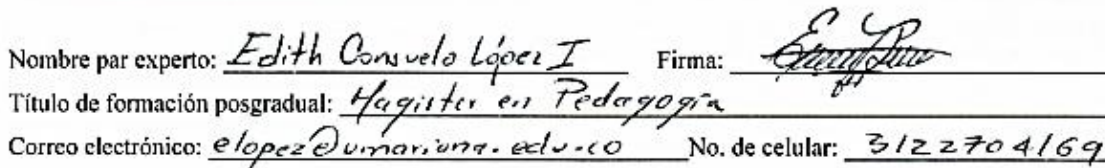 Nombre par experto: Edith Consuelo López I Firma:
Título de formación posgradual: Magister en Pedagogía
Correo electrónico: elopez@umariana.edu.co No. de celular: 3122704169